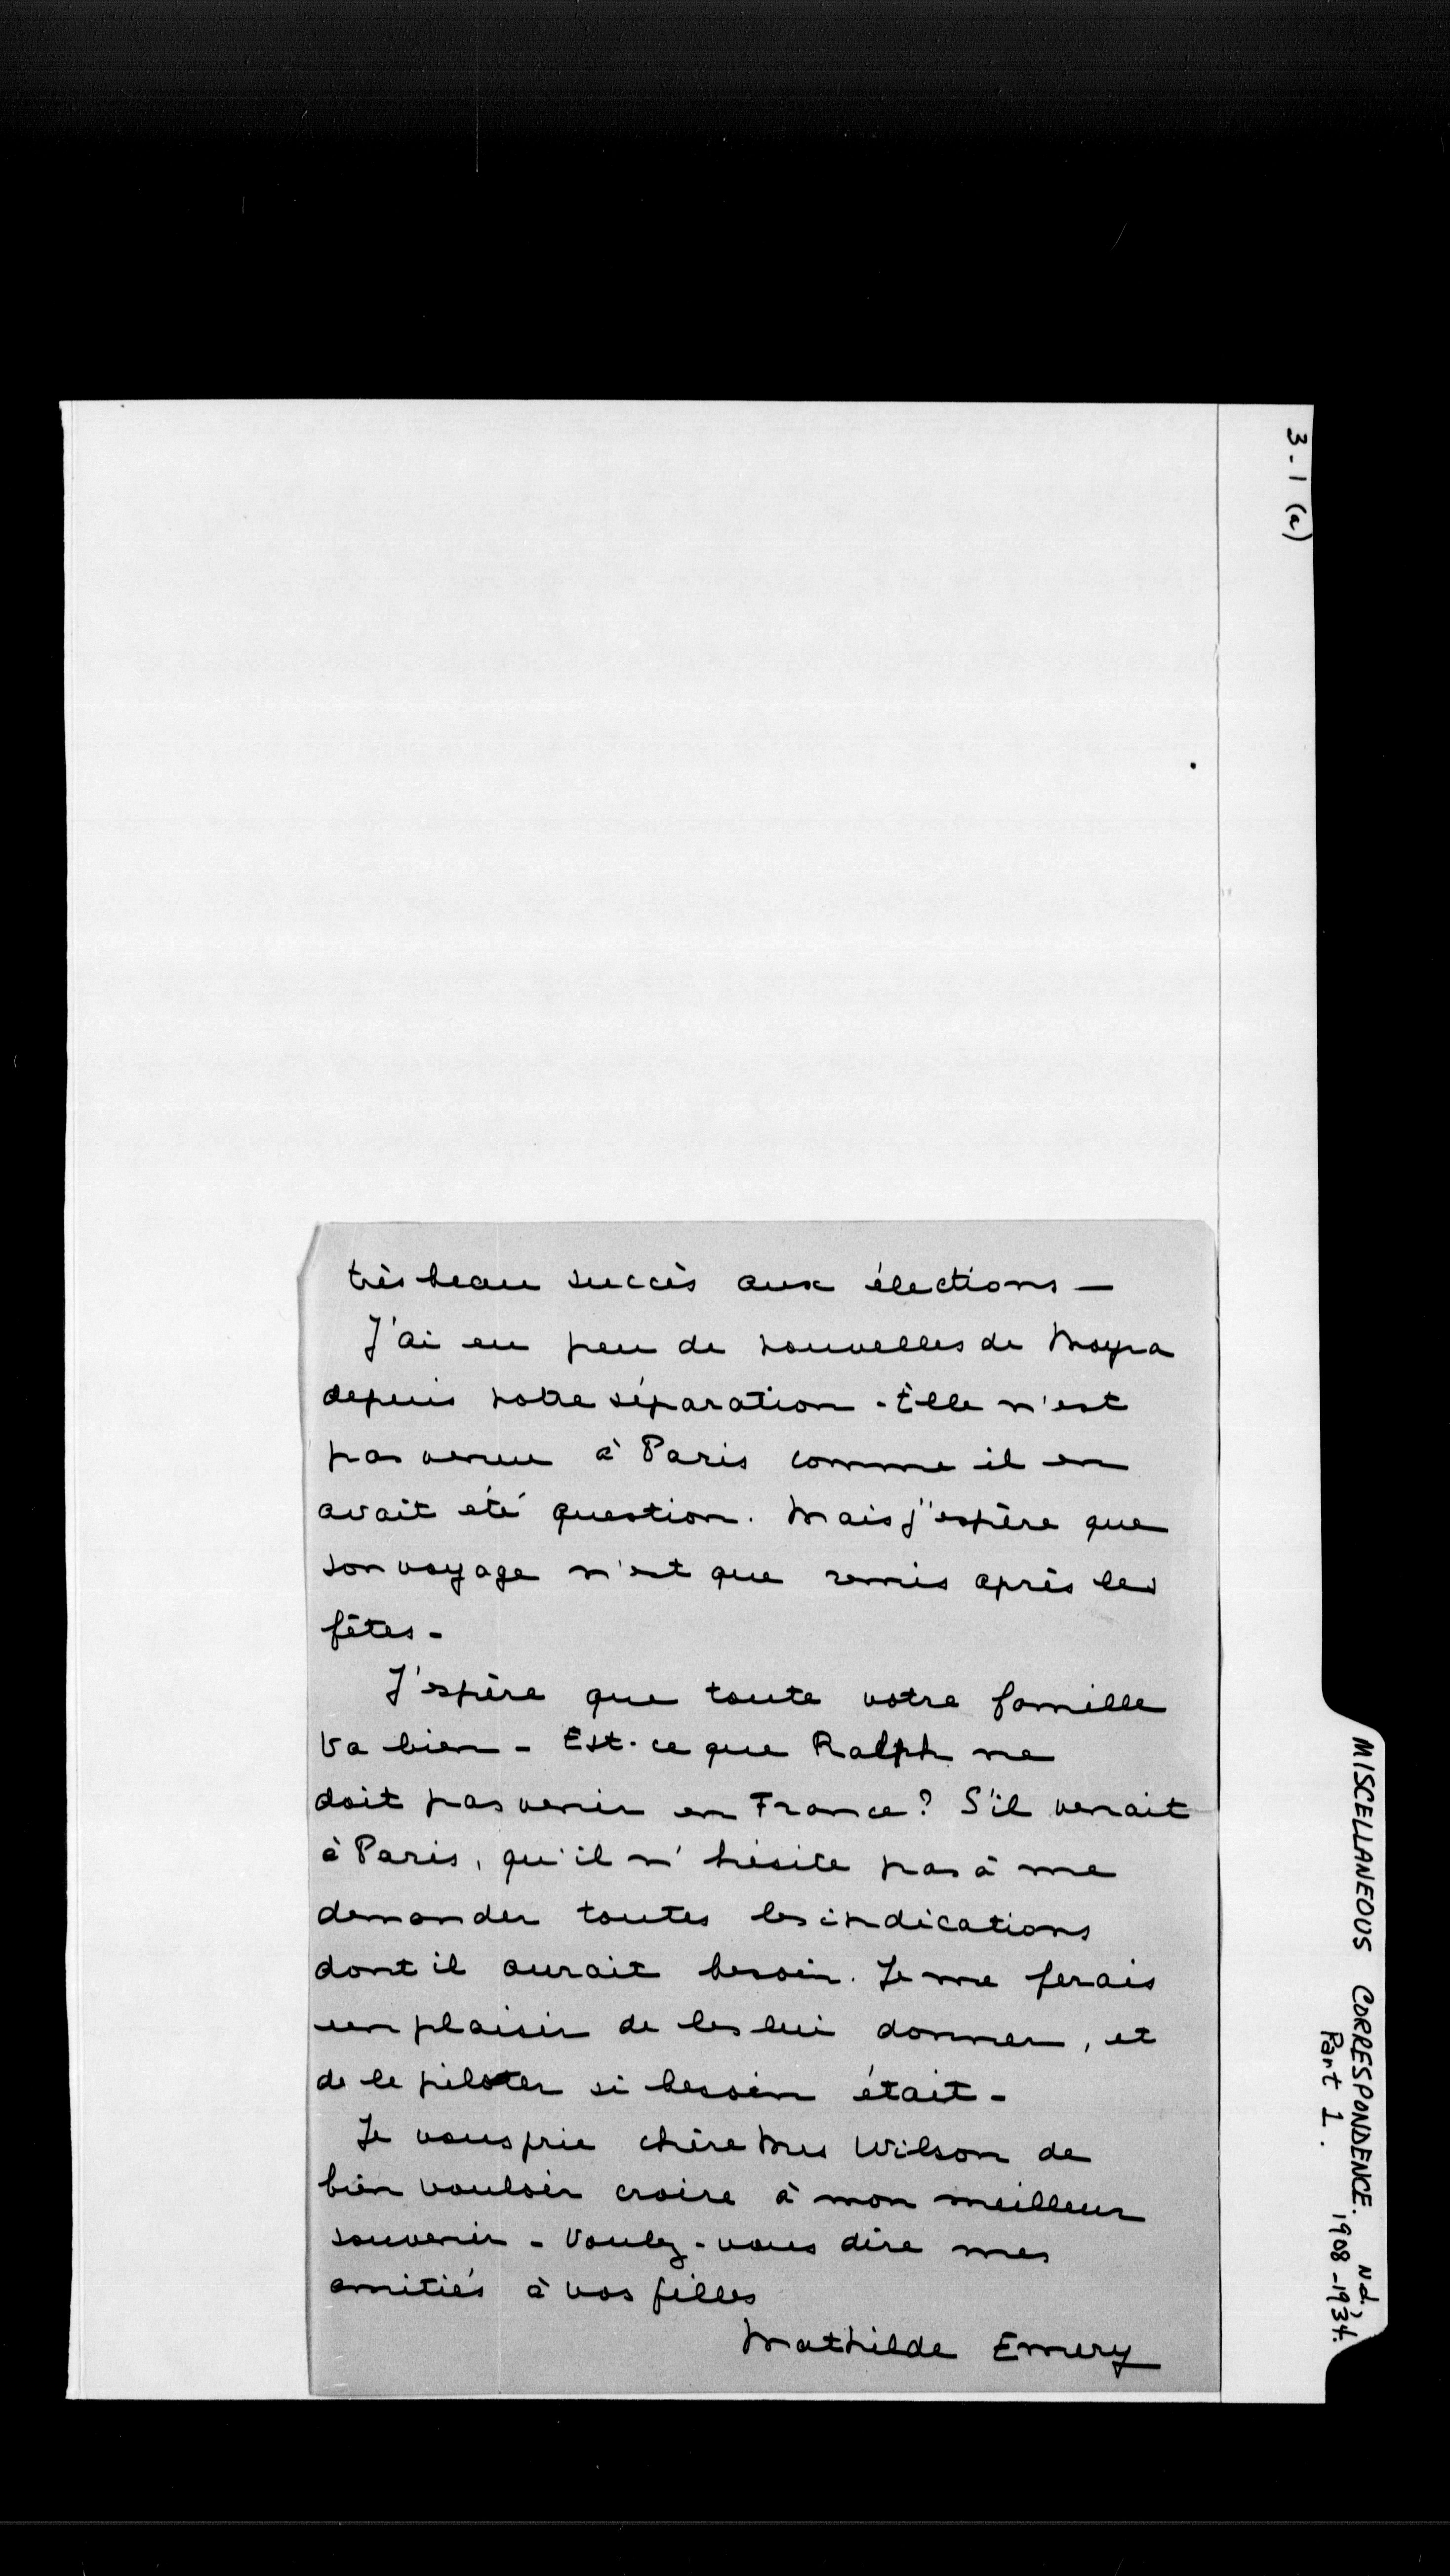 3-1 (a)
très beau succès aux élections —
J'ai eu peu de nouvelles de Moyra
depuis notre séparation - Elle n'est
pas venue à Paris comme il en
avait été question. Mais j'espère que
son voyage n'est que remis après les
fêtes -
J'espère que toute votre famille
va bien - Est-ce que Ralph ne
doit pas venir en France? S'il venait
à Paris, qu'il n'hésite pas à me
demander toutes les indications
dont il aurait besoin. Je me ferais
un plaisir de les lui donner, et
de le piloter si besoin était -
Je vous prie chère Mrs Wilson de
bien vouloir croire à mon meilleur
souvenir - Voulez-vous dire mes
amitiés à vos filles
Mathilde Emery
MISCELLANEOUS CORRESPONDENCE. N.d.,
Part 1. 1908-1934.